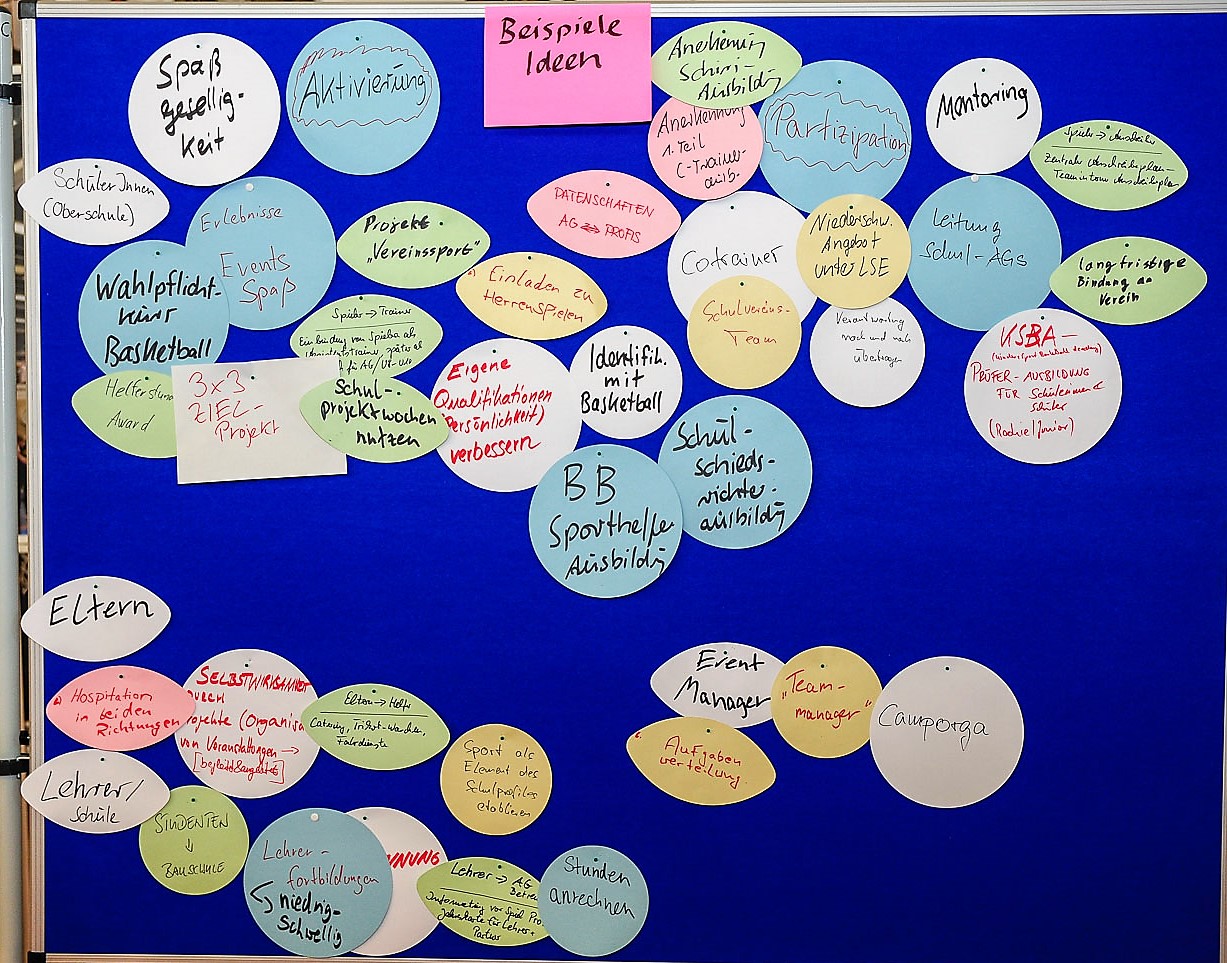 Beispiele
Ideen
Spaß
gesellig-
keit
Aktivierung
Anerkennung
Schiri-
Ausbildg
Anerkennung
1. Teil
C-Trainer-
ausb.
Partizipation
Mentoring
Spieler → Anschreiber
Zentraler Anschreibeplan-
SchülerInnen
(Oberschule)
Erlebnisse
Events
Spaß
Projekt
„Vereinssport"
PATENSCHAFTEN
AG ⇔ PROFIS
Cotrainer
Niederschw.
Angebot
unter LSE
Leitung
Schul-AGs
langfristige
Bindung an
Verein
Wahlpflicht-
kurs
Basketball
Spieler → Trainer
Einbindung von Spieler als
Einladen zu
Herrenspielen
Schulvereins-
Team
Verantwortung
nach und nach
übertragen
Helferstun
Award
3x3
ZIEL-
Projekt
Schul-
projektwochen
nutzen
Eigene
Qualifikationen
(Persönlichkeit)
verbessern
Identifik.
mit
Basketball
PRÜFER-AUSBILDUNG
FÜR Schülerinnen &
Schüler
(Rookie/Junior)
BB
Sporthelfer
Ausbildg
Schul-
schieds-
richter-
ausbildg
Eltern
Hospitation
in beiden
Richtungen
SELBSTWIRKSAMKEIT
rojekte (Organisa
von Veranstaltungen →
Eltern → Helfer
Catering, Trikot-waschen,
Fahrdienste
Sport als
Element des
Schulprofiles
etablieren
Event
Manager
„Team-
manager"
Camporga
Aufgaben
verteilung
Lehrer/
Schule
STUDENTEN
↓
BALLSCHULE
Lehrer-
fortbildungen
↳ niedrig-
Schwellig
NNUNG
Lehrer → AG
Betreu
Jahreskarte für Lehrer+
Partner
Stunden
anrechnen